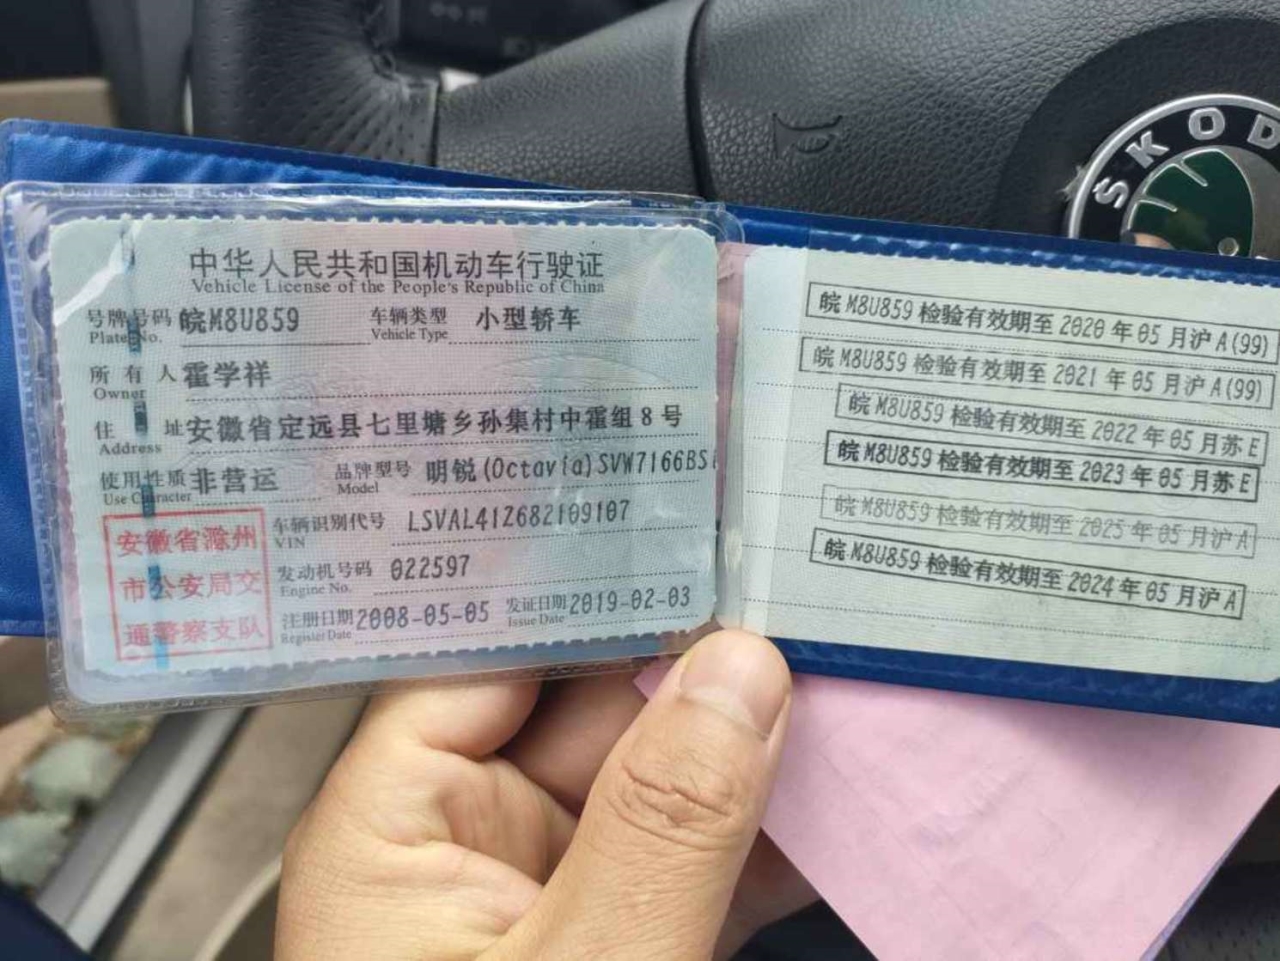 SKOD
中华人民共和国机动车行驶证
Vehicle License of the People's Republic of China
号牌号码 皖M8U859 车辆类型 小型轿车
Plate No. Vehicle Type
所有人 霍学祥
Owner
住址 安徽省定远县七里塘乡孙集村中霍组8号
Address
使用性质 非营运 品牌型号 明锐(Octavia)SVW7166BS
Use Character Model
安徽省滁州
市公安局交
通警察支队
车辆识别代号 LSVAL41Z682109107
VIN
发动机号码 022597
Engine No.
注册日期 2008-05-05 发证日期 2019-02-03
Register Date Issue Date
皖M8U859检验有效期至2020年05月沪A(99)
皖M8U859检验有效期至2021年05月沪A(99)
皖M8U859检验有效期至2022年05月苏E
皖M8U859检验有效期至2023年05月苏E
皖M8U859检验有效期至2025年05月沪A
皖M8U859检验有效期至2024年05月沪A